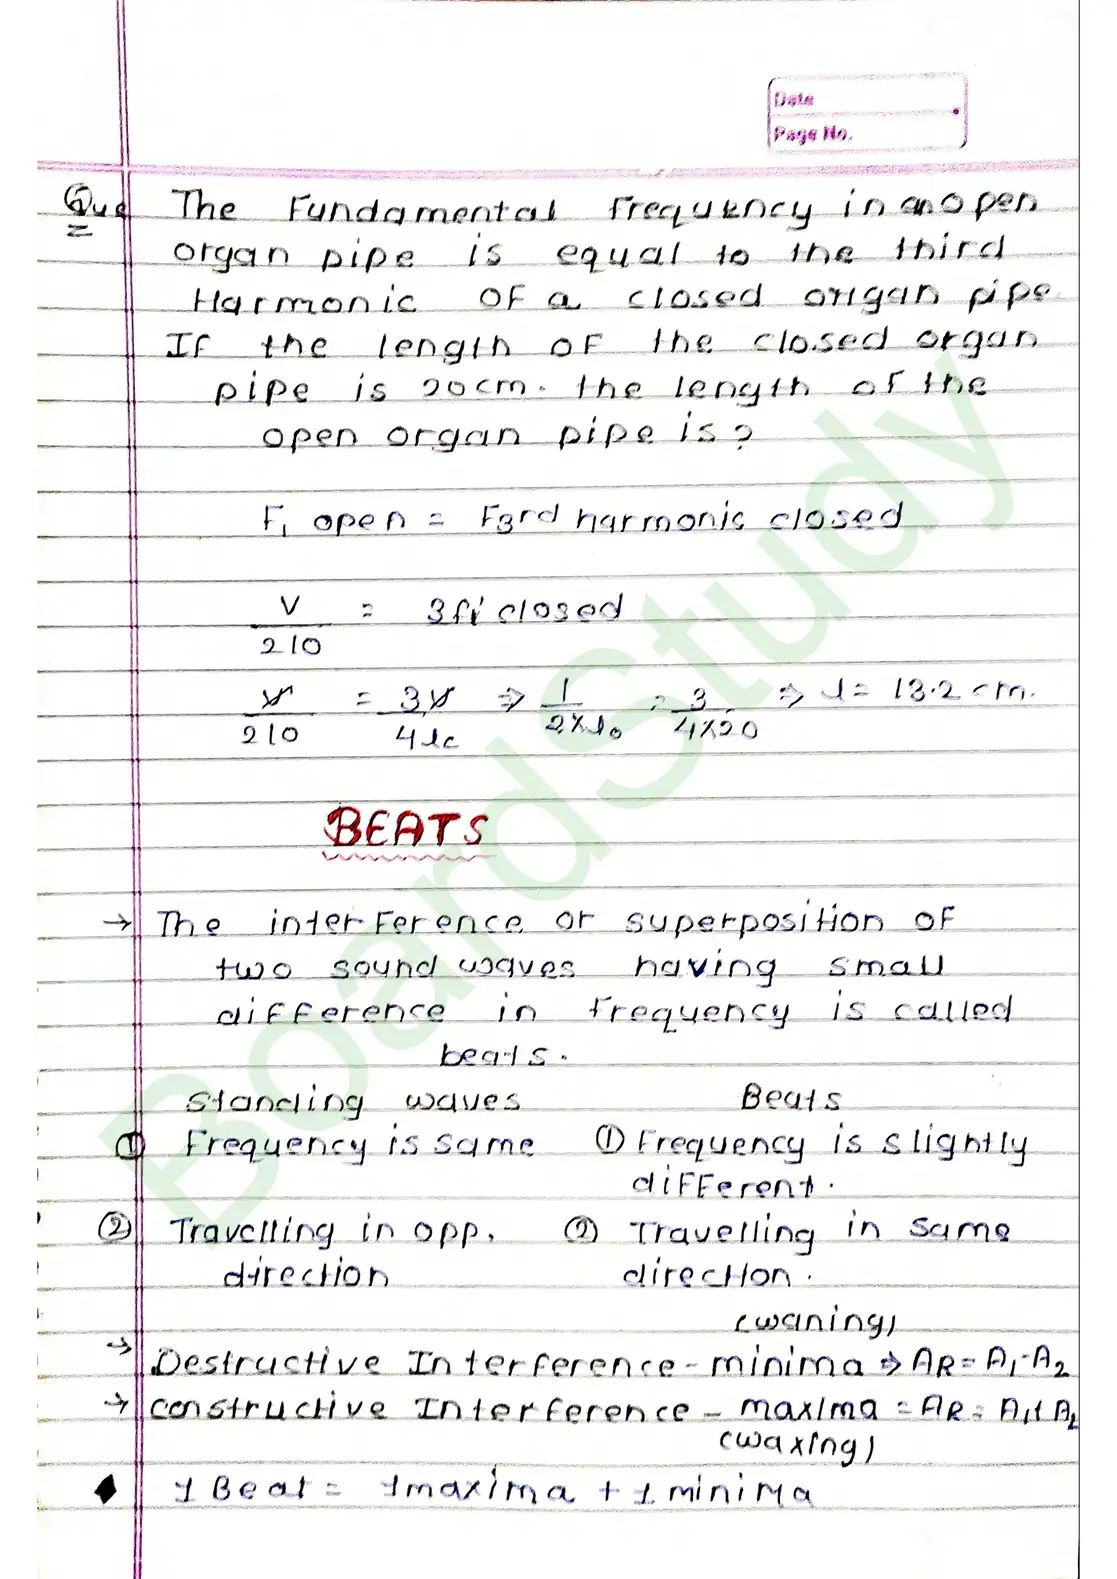 Date
Page No.
Que The Fundamental frequency in an open
organ pipe is equal to the third
Harmonic OF a closed organ pipe.
If the length OF the closed organ
pipe is 20cm. the length of the
open organ pipe is ?
F₁ open = F3rd harmonic closed
V/2l0 = 3f₁ closed
V/2l0 = 3V/4lc ⇒ 1/2×l₀ = 3/4×20 ⇒ l = 13.2 cm.
BEATS
→ The interference or superposition OF
two sound waves having small
difference in frequency is called
beats.
Standing waves Beats
① Frequency is same ① Frequency is slightly
different.
② Travelling in opp. ② Travelling in same
direction direction.
(waning)
→ Destructive Interference - minima ⇒ AR = A₁-A₂
→ constructive Interference - maxima = AR = A₁+A₂
(waxing)
♦ 1 Beat = 1 maxima + 1 minima
BoardStudy